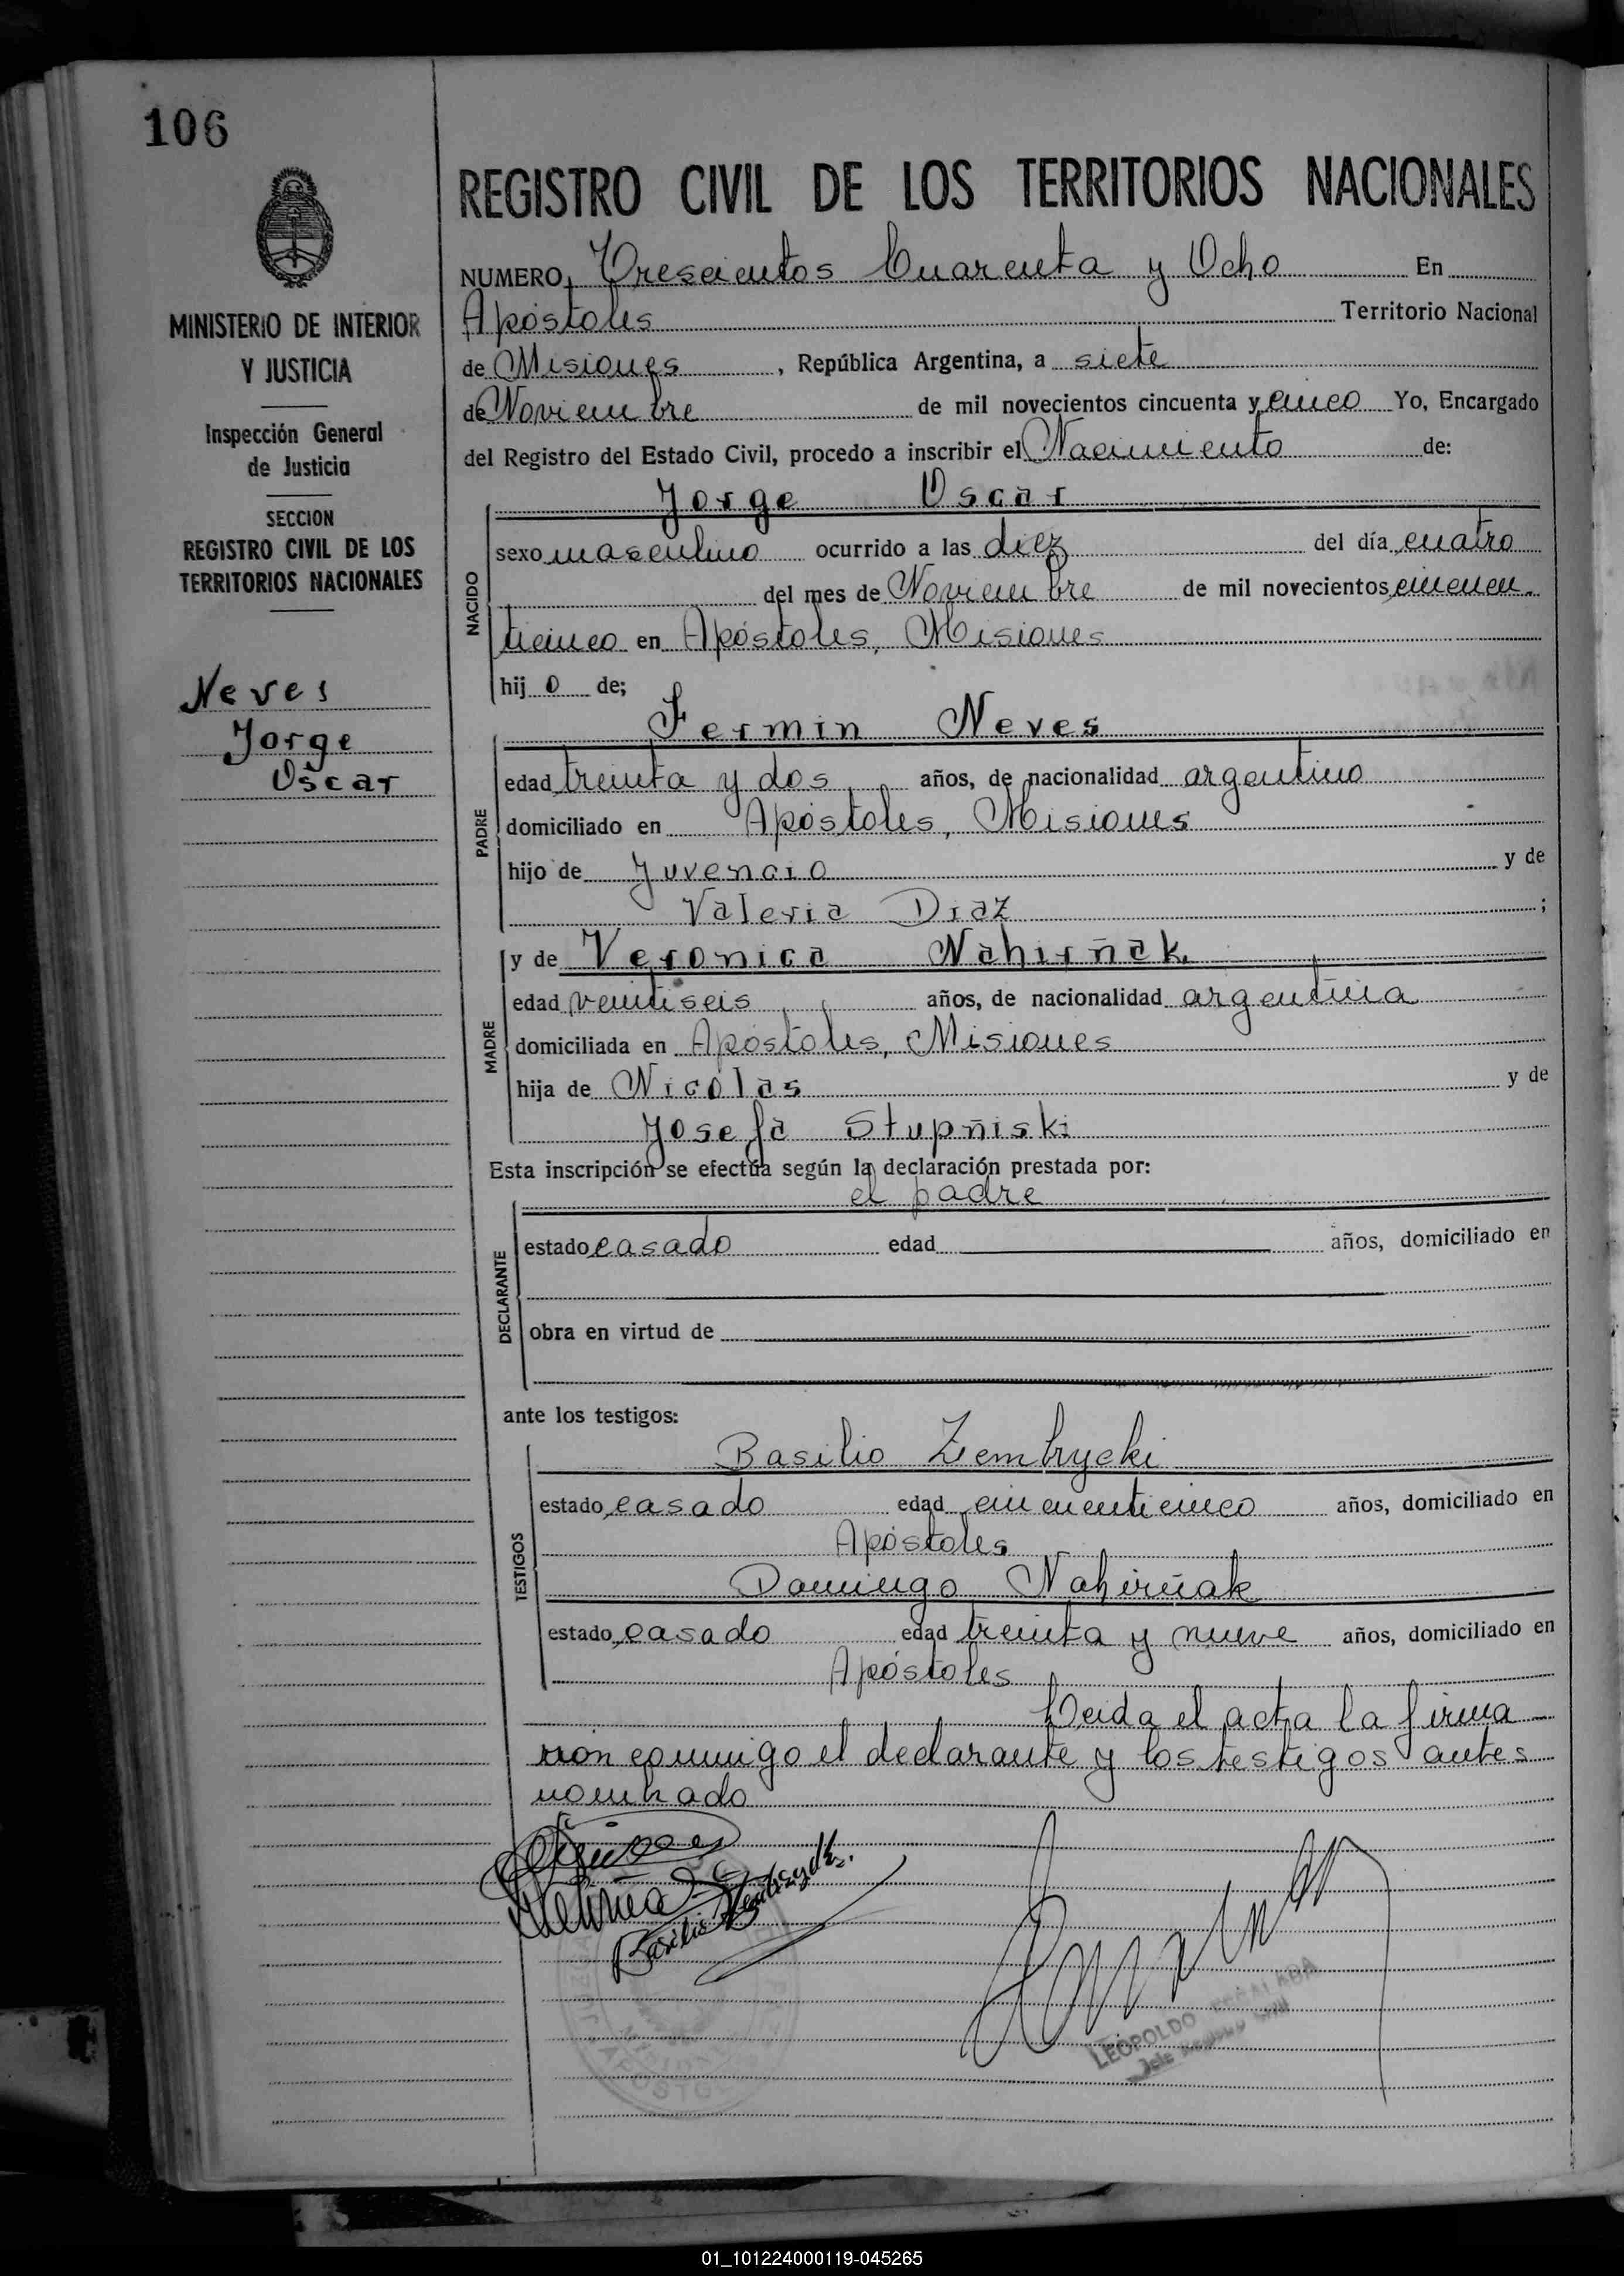 106
MINISTERIO DE INTERIOR
Y JUSTICIA
Inspección General
de Justicia
SECCION
REGISTRO CIVIL DE LOS
TERRITORIOS NACIONALES
Neves
Jorge
Oscar
REGISTRO CIVIL DE LOS TERRITORIOS NACIONALES
NUMERO Trescientos Cuarenta y Ocho En
Apóstoles Territorio Nacional
de Misiones, República Argentina, a siete
de Noviembre de mil novecientos cincuenta y cinco Yo, Encargado
del Registro del Estado Civil, procedo a inscribir el Nacimiento de:
Jorge Oscar
NACIDO
sexo masculino ocurrido a las diez del día cuatro
del mes de Noviembre de mil novecientos cincuen.
ticinco en Apóstoles, Misiones
hij o de;
Fermin Neves
PADRE
edad treinta y dos años, de nacionalidad argentino
domiciliado en Apóstoles, Misiones
hijo de Juvencio y de
Valeria Diaz ;
y de Veronica Nahirñak
MADRE
edad veintiseis años, de nacionalidad argentina
domiciliada en Apóstoles, Misiones
hija de Nicolas y de
Josefa Stupñiski
Esta inscripción se efectúa según la declaración prestada por:
el padre
DECLARANTE
estado casado edad años, domiciliado en
obra en virtud de
ante los testigos:
Basilio Zembrycki
TESTIGOS
estado casado edad cincuenticinco años, domiciliado en
Apóstoles
Domingo Nahirñak
estado casado edad treinta y nueve años, domiciliado en
Apóstoles
Leida el acta la firma-
ron conmigo el declarante y los testigos antes
nombrado
LEOPOLDO
Jefe Registro Civil
01_101224000119-045265